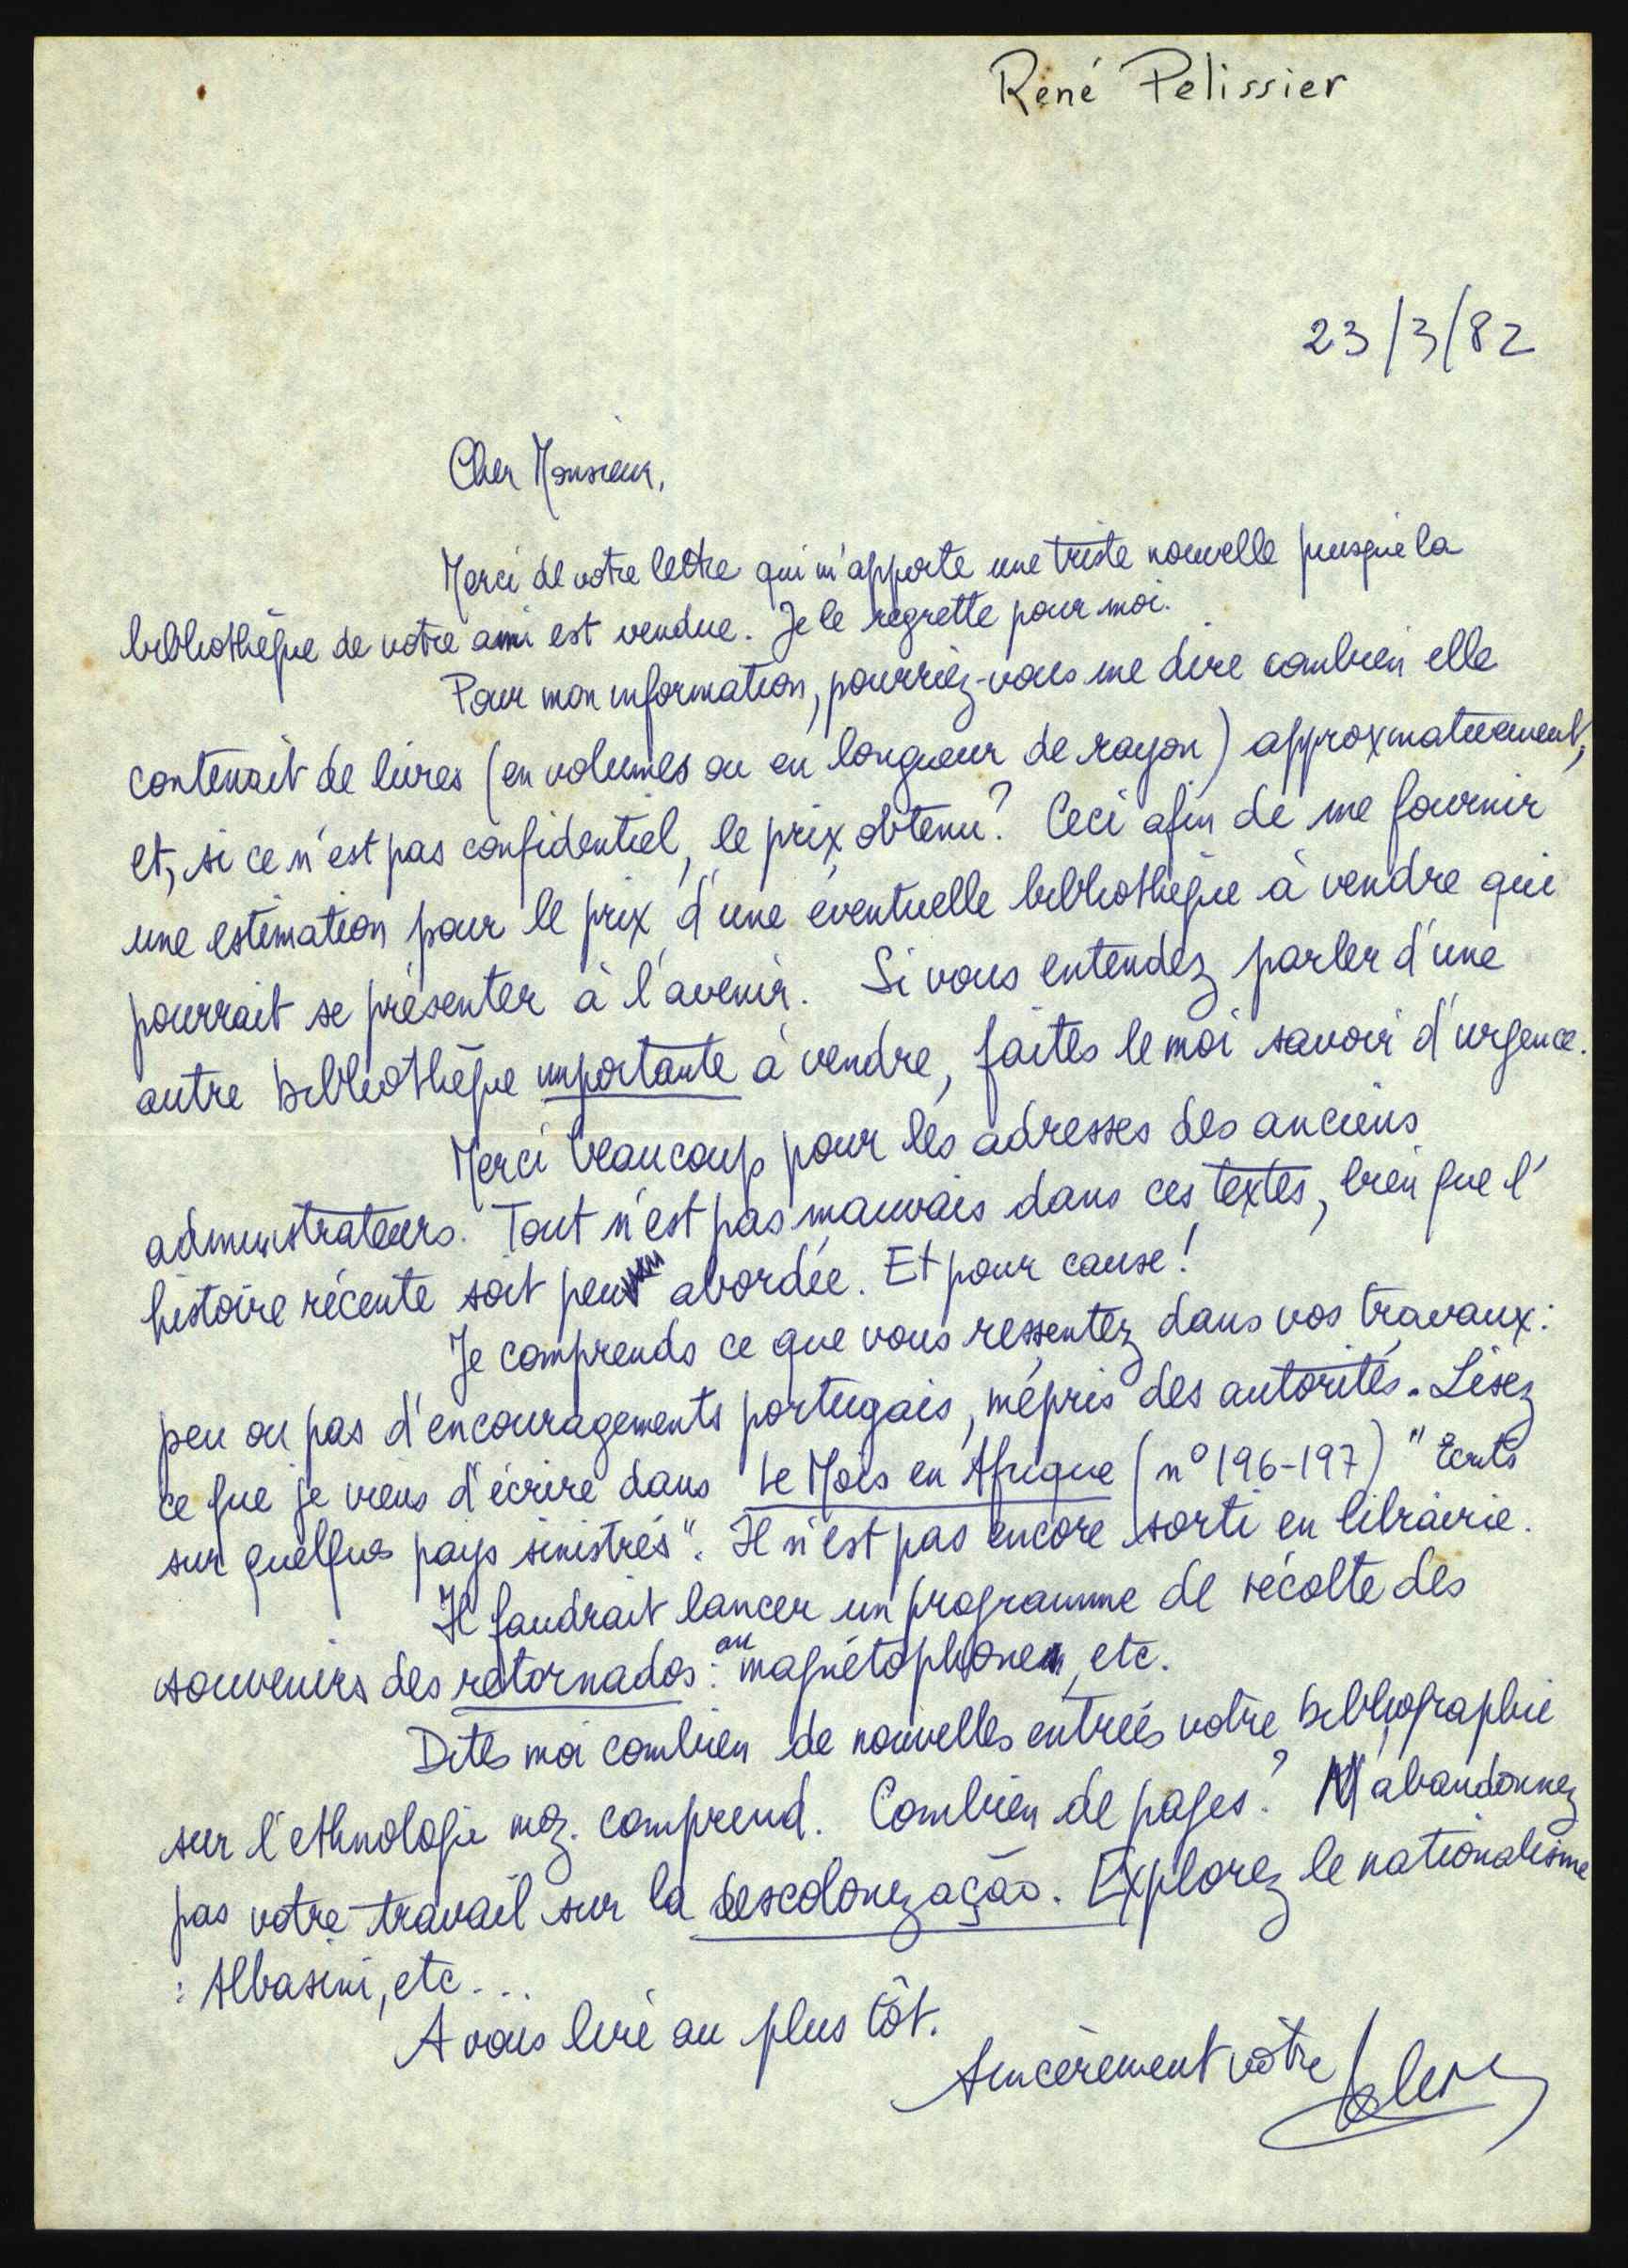 René Pelissier
23/3/82
Cher Monsieur,
Merci de votre lettre qui m'apporte une triste nouvelle puisque la
bibliothèque de votre ami est vendue. Je le regrette pour moi.
Pour mon information, pourriez-vous me dire combien elle
contenait de livres (en volumes ou en longueur de rayon) approximativement,
et, si ce n'est pas confidentiel, le prix obtenu? Ceci afin de me fournir
une estimation pour le prix d'une éventuelle bibliothèque à vendre qui
pourrait se présenter à l'avenir. Si vous entendez parler d'une
autre bibliothèque importante à vendre, faites le moi savoir d'urgence.
Merci beaucoup pour les adresses des anciens
administrateurs. Tout n'est pas mauvais dans ces textes, bien que l'
histoire récente soit peu abordée. Et pour cause!
Je comprends ce que vous ressentez dans vos travaux:
peu ou pas d'encouragements portugais, mépris des autorités. Lisez
ce que je viens d'écrire dans Le Mois en Afrique (n° 196-197) "Ecrits
sur quelques pays sinistrés". Il n'est pas encore sorti en librairie.
Il faudrait lancer un programme de récolte des
souvenirs des retornados: au magnétophone, etc.
Dites moi combien de nouvelles entrées votre bibliographie
sur l'ethnologie moz. comprend. Combien de pages? N'abandonnez
pas votre travail sur la descolonização. Explorez le nationalisme
: Albasini, etc...
A vous lire au plus tôt.
Sincèrement vôtre